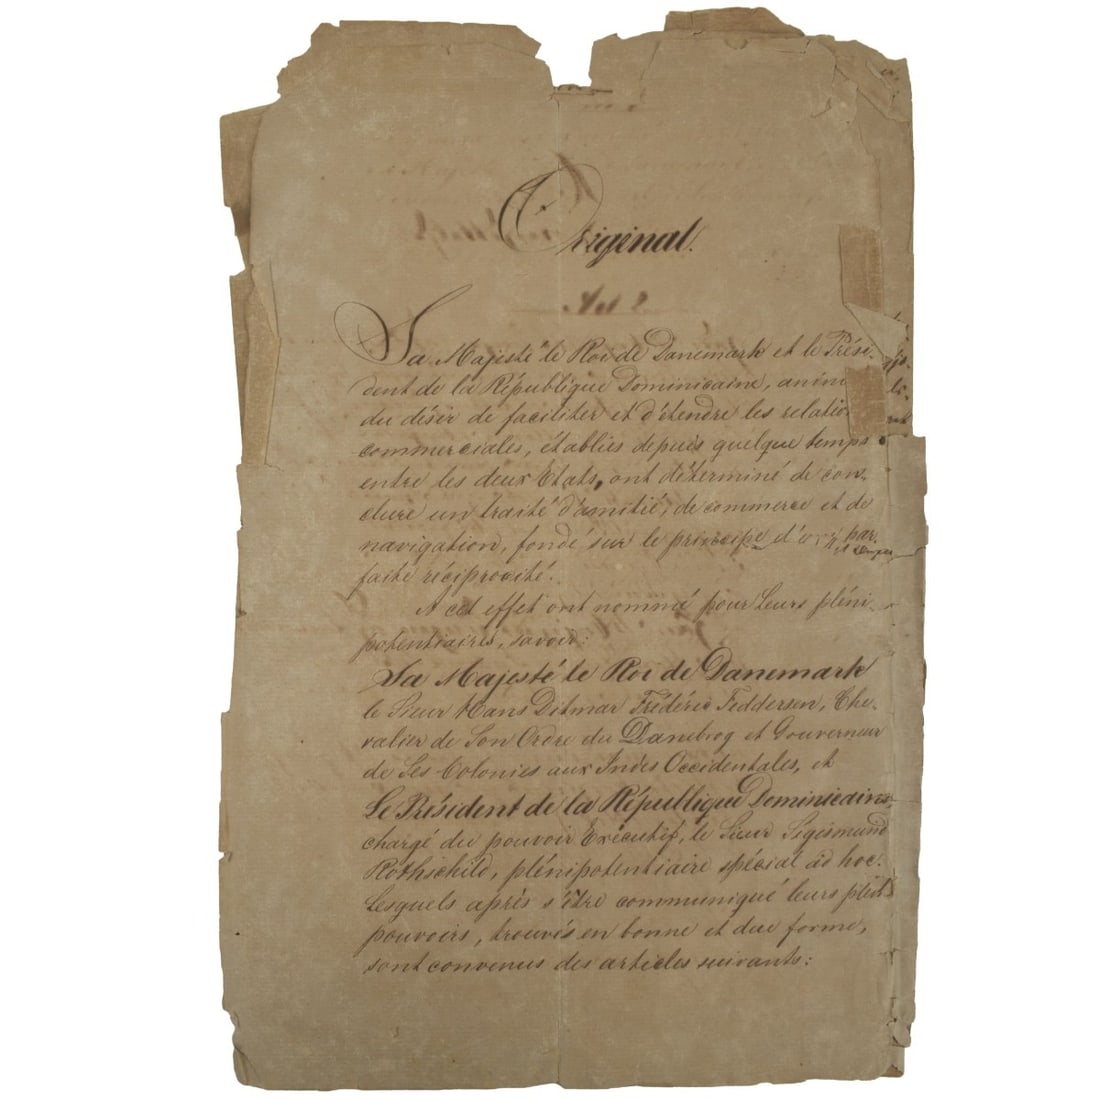 Original.
Sa Majesté le Roi de Danemark et le Prési-
dent de la République Dominicaine, anim
du désir de faciliter et d'étendre les relatio
commerciales, établies depuis quelque temps
entre les deux Etats, ont déterminé de con-
clure un traité d'amitié, de commerce et de
navigation, fondé sur le principe d'une par-
faite réciprocité.
A cet effet ont nommé pour Leurs pléni-
potentiaires, savoir:
Sa Majesté le Roi de Danemark
le Sieur Hans Ditmar Frédéric Feddersen, Che-
valier de Son Ordre du Danebrog et Gouverneur
de Ses Colonies aux Indes Occidentales, et
Le Président de la République Dominicaine,
chargé du pouvoir Exécutif, le Sieur Sigismund
Rothschild, plénipotentiaire spécial ad hoc.
Lesquels après s'être communiqué leurs pleins
pouvoirs, trouvés en bonne et due forme,
sont convenus des articles suivants: